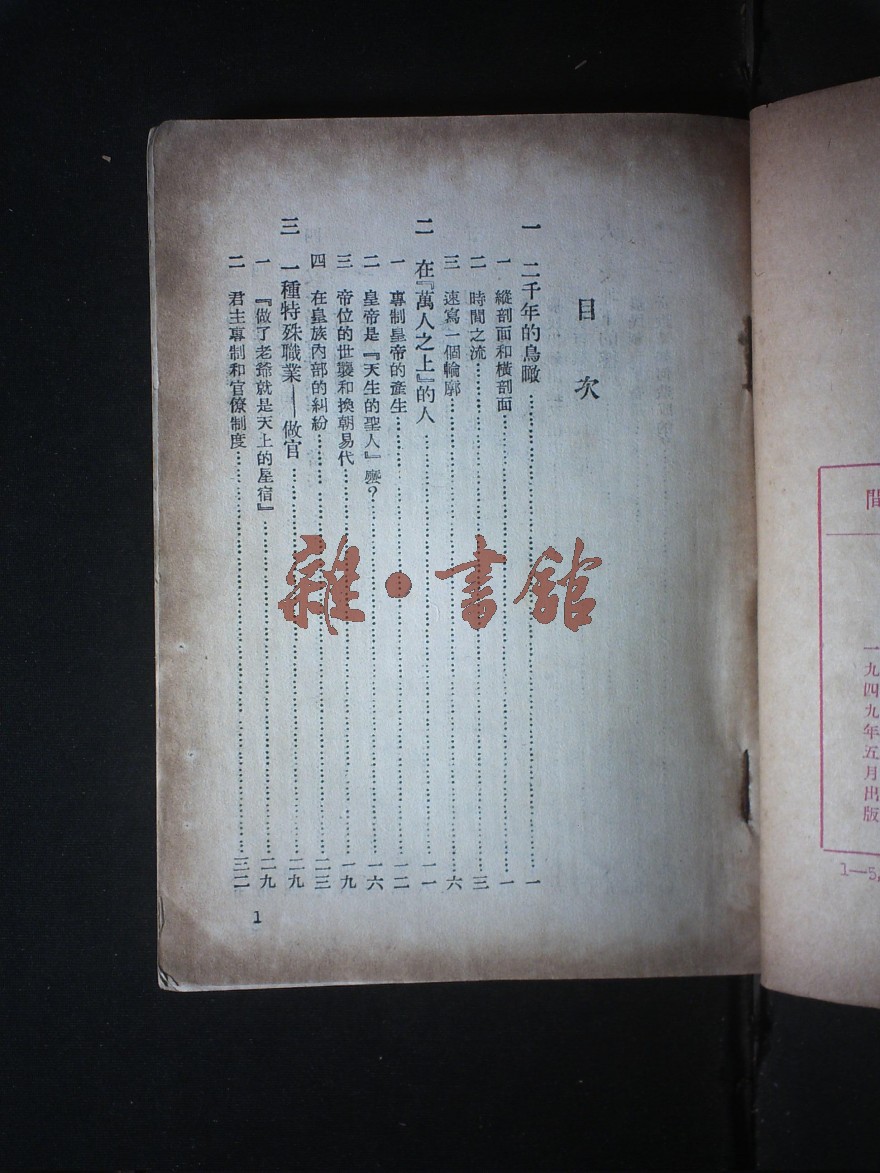 間
一九四九年五月出版
1—5,
目次
一 二千年的鳥瞰……一
一 縱剖面和橫剖面……一
二 時間之流……三
三 速寫一個輪廓……六
二 在『萬人之上』的人……一一
一 專制皇帝的產生……一二
二 皇帝是『天生的聖人』麼？……一六
三 帝位的世襲和換朝易代……一九
四 在皇族內部的糾紛……二三
三 一種特殊職業——做官……二九
一 『做了老爺就是天上的星宿』……二九
二 君主專制和官僚制度……三二
1
雜·書館